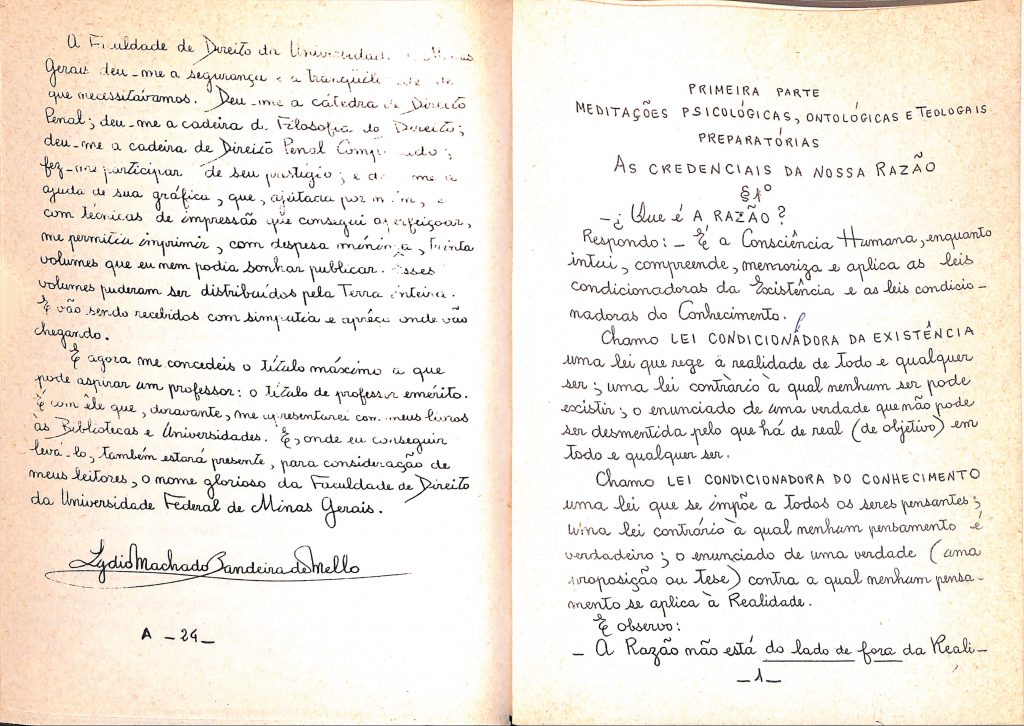 A Faculdade de Direito da Universidade de Minas
Gerais deu-me a segurança e a tranqüilidade de
que necessitávamos. Deu-me a cátedra de Direito
Penal; deu-me a cadeira de Filosofia do Direito;
deu-me a cadeira de Direito Penal Comparado;
fez-me participar de seu prestígio; e deu-me a
ajuda de sua gráfica, que, ajeitada por mim, e
com técnicas de impressão que consegui aperfeiçoar,
me permitiu imprimir, com despesa mínima, trinta
volumes que eu nem podia sonhar publicar. Esses
volumes puderam ser distribuídos pela Terra inteira.
E vão sendo recebidos com simpatia e aprêço onde vão
chegando.
E agora me concedeis o título máximo a que
pode aspirar um professor: o título de professor emérito.
É com ele que, doravante, me apresentarei com meus livros
às Bibliotecas e Universidades. E, onde eu conseguir
levá-lo, também estará presente, para consideração de
meus leitores, o nome glorioso da Faculdade de Direito
da Universidade Federal de Minas Gerais.
Lydio Machado Bandeira de Mello
A -24-
PRIMEIRA PARTE
MEDITAÇÕES PSICOLÓGICAS, ONTOLÓGICAS E TEOLOGAIS
PREPARATÓRIAS
AS CREDENCIAIS DA NOSSA RAZÃO
§1º
-¿ Que é A RAZÃO?
Respondo: - É a Consciência Humana, enquanto
intui, compreende, memoriza e aplica as leis
condicionadoras da Existência e as leis condicio-
nadoras do Conhecimento.
Chamo LEI CONDICIONADORA DA EXISTÊNCIA
uma lei que rege a realidade de todo e qualquer
ser; uma lei contrário à qual nenhum ser pode
existir; o enunciado de uma verdade que não pode
ser desmentida pelo que há de real (de objetivo) em
todo e qualquer ser.
Chamo LEI CONDICIONADORA DO CONHECIMENTO
uma lei que se impõe a todos os seres pensantes;
uma lei contrário à qual nenhum pensamento é
verdadeiro; o enunciado de uma verdade (uma
proposição ou tese) contra a qual nenhum pensa-
mento se aplica à Realidade.
E observo:
- A Razão não está do lado de fora da Reali-
-1-